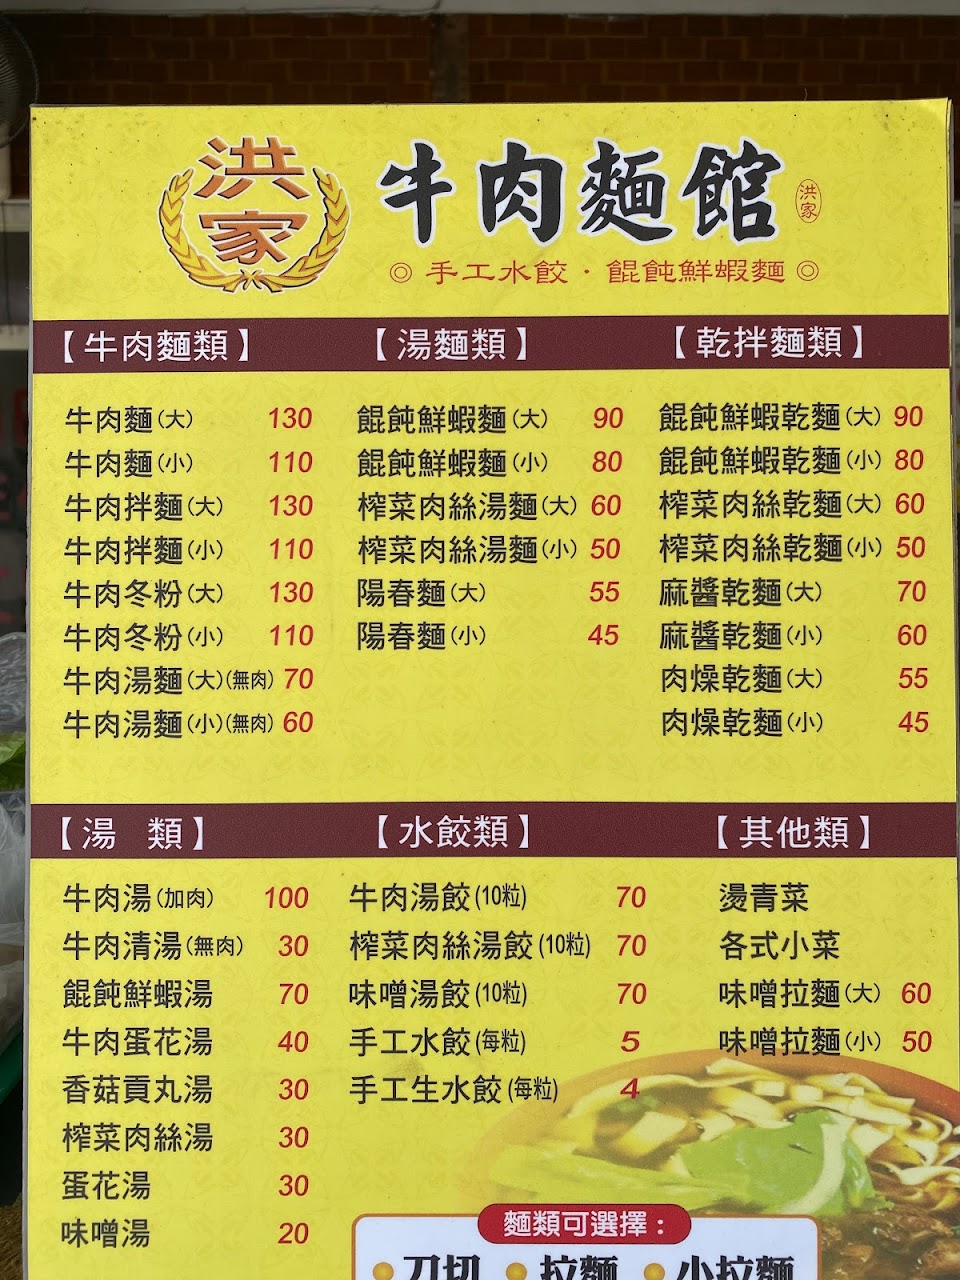 洪家
牛肉麵館
洪家
◎ 手工水餃 · 餛飩鮮蝦麵 ◎
【牛肉麵類】
牛肉麵(大) 130
牛肉麵(小) 110
牛肉拌麵(大) 130
牛肉拌麵(小) 110
牛肉冬粉(大) 130
牛肉冬粉(小) 110
牛肉湯麵(大)(無肉) 70
牛肉湯麵(小)(無肉) 60
【湯麵類】
餛飩鮮蝦麵(大) 90
餛飩鮮蝦麵(小) 80
榨菜肉絲湯麵(大) 60
榨菜肉絲湯麵(小) 50
陽春麵(大) 55
陽春麵(小) 45
【乾拌麵類】
餛飩鮮蝦乾麵(大) 90
餛飩鮮蝦乾麵(小) 80
榨菜肉絲乾麵(大) 60
榨菜肉絲乾麵(小) 50
麻醬乾麵(大) 70
麻醬乾麵(小) 60
肉燥乾麵(大) 55
肉燥乾麵(小) 45
【湯 類】
牛肉湯(加肉) 100
牛肉清湯(無肉) 30
餛飩鮮蝦湯 70
牛肉蛋花湯 40
香菇貢丸湯 30
榨菜肉絲湯 30
蛋花湯 30
味噌湯 20
【水餃類】
牛肉湯餃(10粒) 70
榨菜肉絲湯餃(10粒) 70
味噌湯餃(10粒) 70
手工水餃(每粒) 5
手工生水餃(每粒) 4
【其他類】
燙青菜
各式小菜
味噌拉麵(大) 60
味噌拉麵(小) 50
麵類可選擇：
●刀切 ●拉麵 ●小拉麵